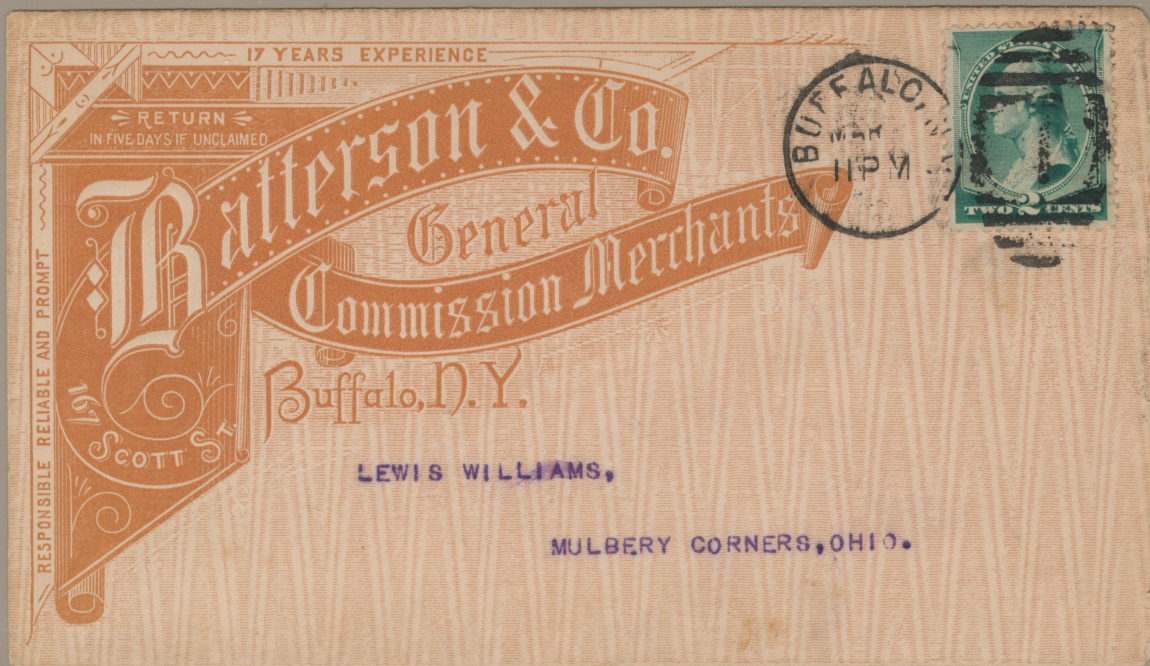 17 YEARS EXPERIENCE
RETURN
IN FIVE DAYS IF UNCLAIMED
Batterson & Co.
General
Commission Merchants
Buffalo, N.Y.
167 SCOTT ST.
RESPONSIBLE RELIABLE AND PROMPT
BUFFALO, N.Y.
MAR
11 PM
UNITED STATES
TWO 2 CENTS
1
LEWIS WILLIAMS,
MULBERY CORNERS, OHIO.